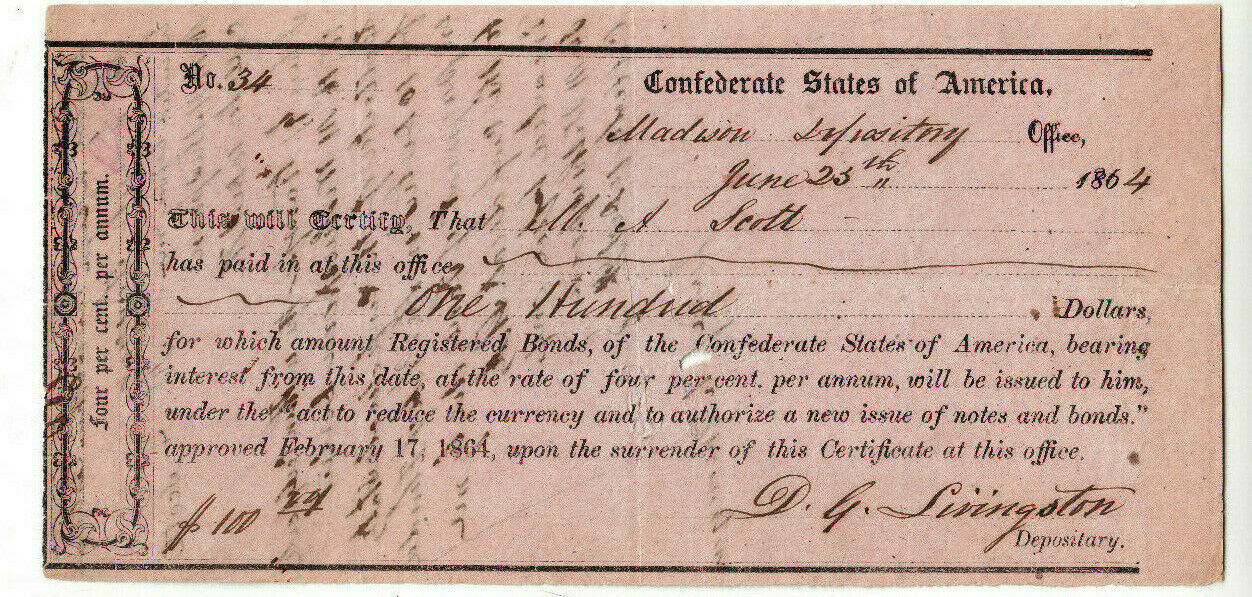 No. 34
Confederate States of America,
Madison Depository Office,
June 25th 1864
This will Certify, That M. A Scott
has paid in at this office
One Hundred Dollars,
for which amount Registered Bonds, of the Confederate States of America, bearing
interest from this date, at the rate of four per cent. per annum, will be issued to him,
under the "act to reduce the currency and to authorize a new issue of notes and bonds."
approved February 17, 1864, upon the surrender of this Certificate at this office.
$100
D. G. Livingston
Depositary.
Four per cent. per annum.